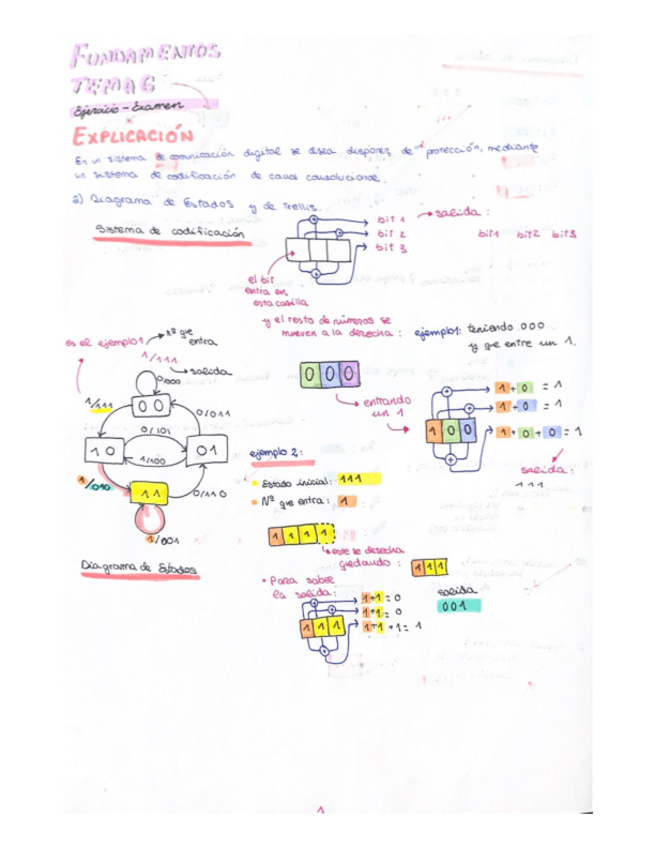 FUNDAMENTOS
TEMA 6
Ejercicio - Examen
EXPLICACIÓN
En un sistema de comunicación digital se desea disponer de protección, mediante
un sistema de codificación de canal convolucional.
a) Diagrama de Estados y de Trellis.
Sistema de codificación
bit 1
bit 2
bit 3
salida:
bit1 bit2 bit3
el bit
entra en
esta casilla
y el resto de números se
mueven a la derecha:
ejemplo1: teniendo 000
y que entre un 1.
es el ejemplo1
nº que
entra
1/111
salida
0/000
1/111
00
0/011
0/101
10
01
1/100
1/010
11
0/110
1/001
Diagrama de Estados
0 0 0
entrando
un 1
1 0 0
1 + 0 = 1
1 + 0 = 1
1 + 0 + 0 = 1
salida:
111
ejemplo 2:
Estado inicial: 111
Nº que entra: 1
1 1 1 1
este se desecha
quedando: 1 1 1
• Para saber
la salida:
1 1 1
1+1=0
1+1=0
1+1+1=1
salida
001
1